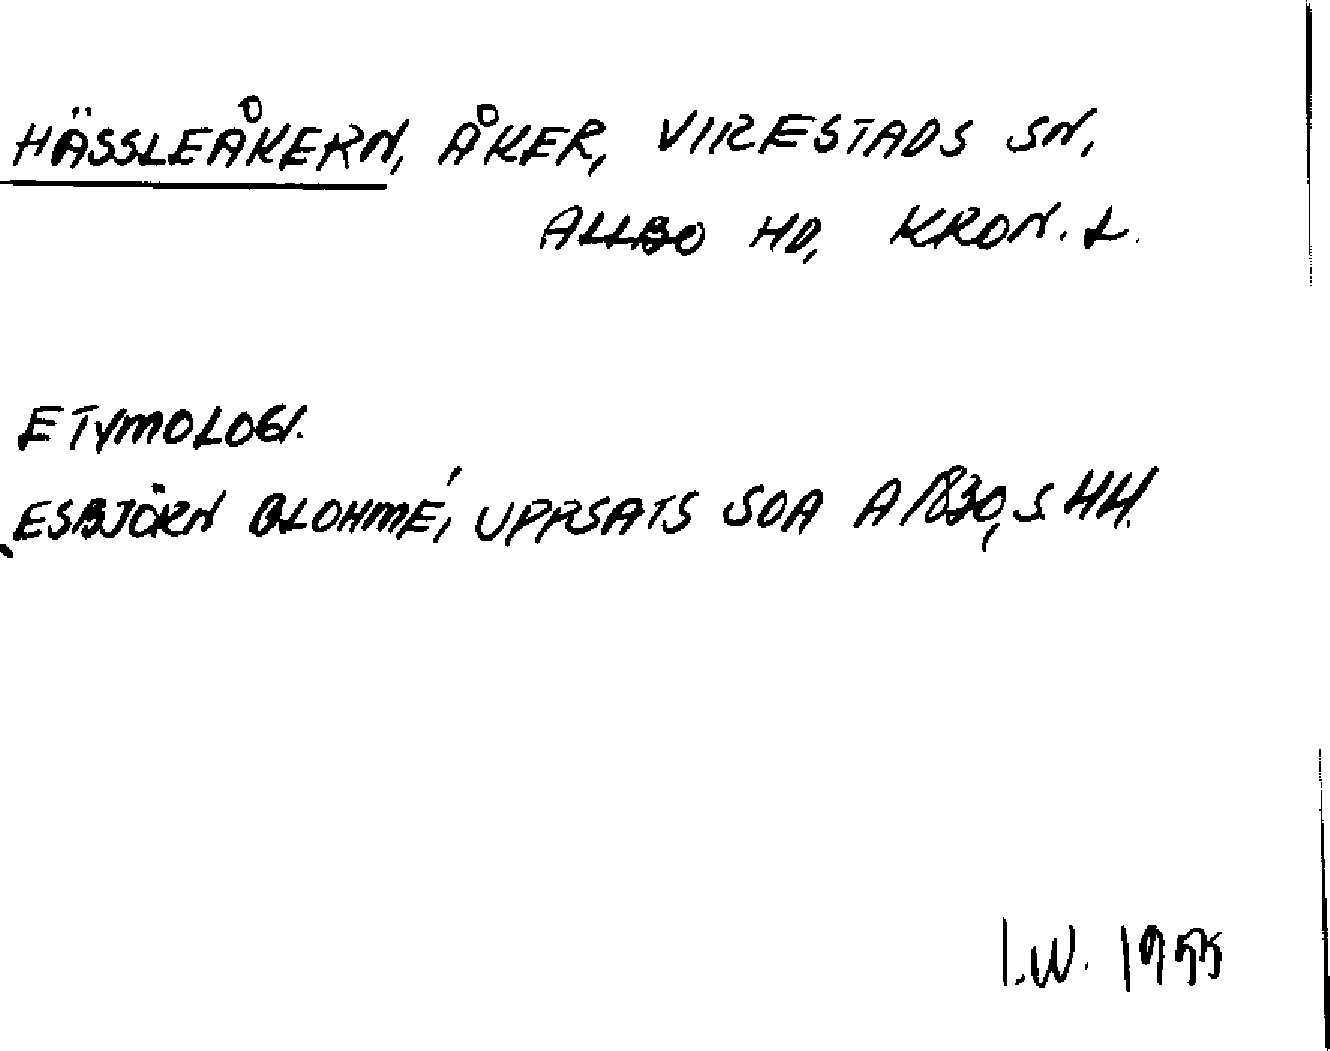 HÄSSLEÅKERN, ÅKER, VIRESTADS SN,
ALLBO HD, KRON. L.
ETYMOLOGI.
ESBJÖRN BLOHMÉ, UPPSATS SOA A 1830, S. 44.
I.W. 1955